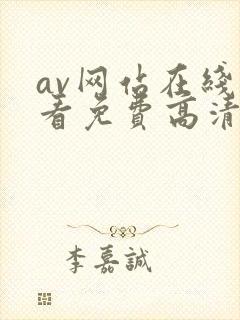 av网佔在綫
看免費高清
李嘉誠